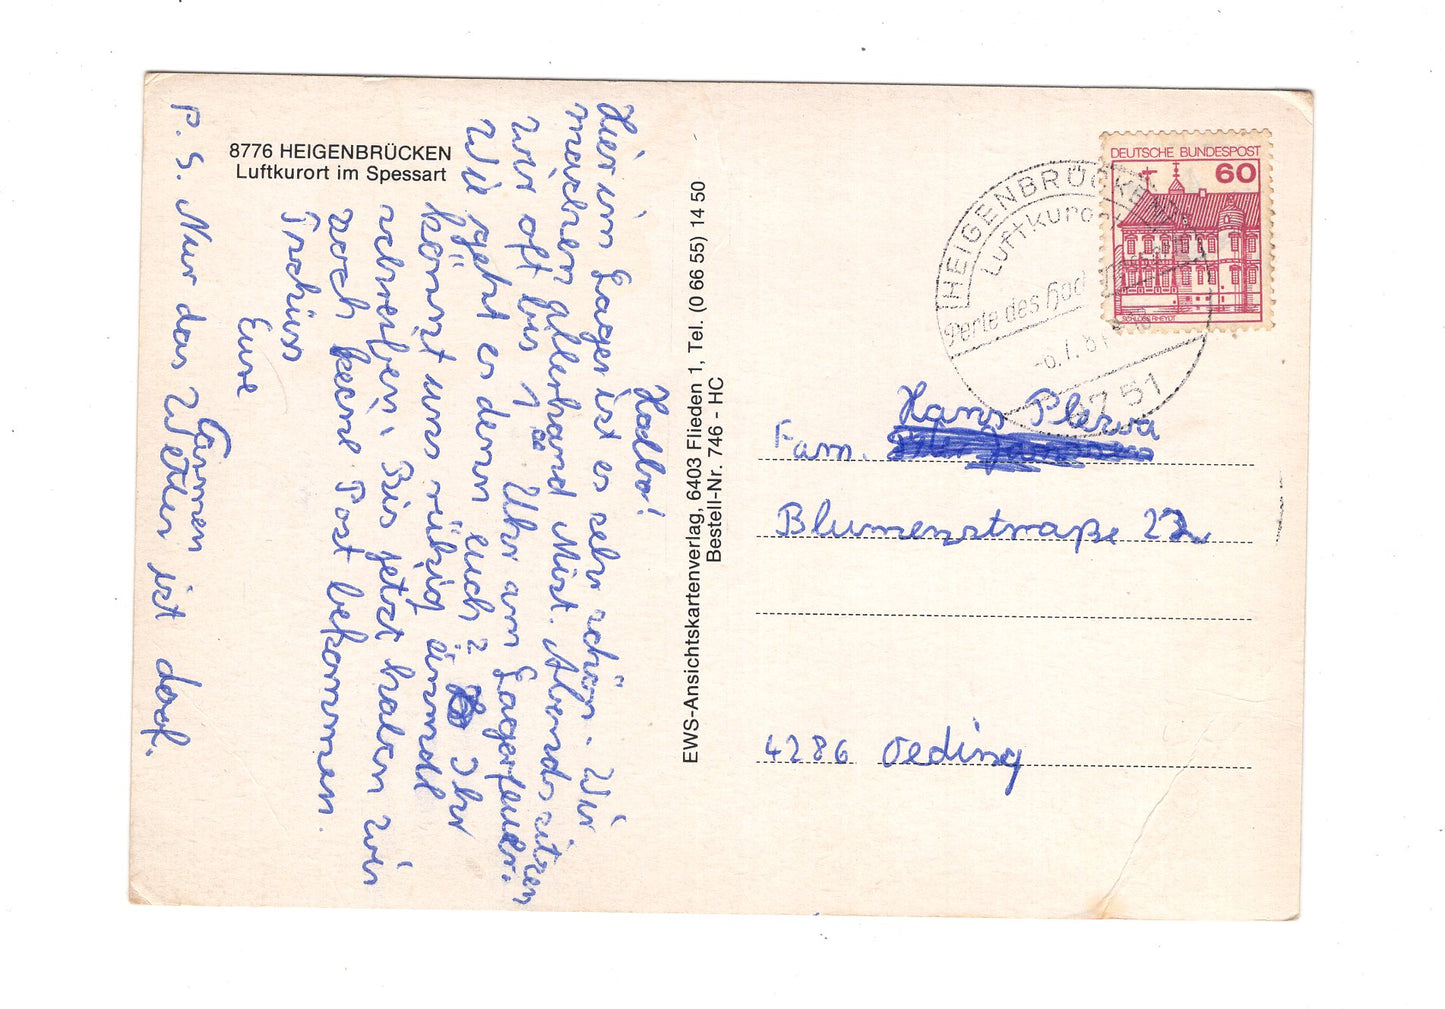 8776 HEIGENBRÜCKEN
Luftkurort im Spessart
Hallo!
Hier im Lager ist es sehr schön. Wir
machen allerhand Mist. Abends sitzen
wir oft bis 1 Uhr am Lagerfeuer.
Wie geht es denn euch? Ihr
könnt uns ruhig einmal
schreiben. Bis jetzt haben wir
noch keine Post bekommen.
Tschüss
Eure
Carmen
P. S. Nur das Wetter ist doof.
EWS-Ansichtskartenverlag, 6403 Flieden 1, Tel. (0 66 55) 14 50
Bestell-Nr. 746 - HC
DEUTSCHE BUNDESPOST
60
SCHLOSS RHEYDT
HEIGENBRÜCKEN
Luftkuror
Perle des Hoch
8751
Hans Plewa
Fam.
Blumenstraße
4286 Oeding